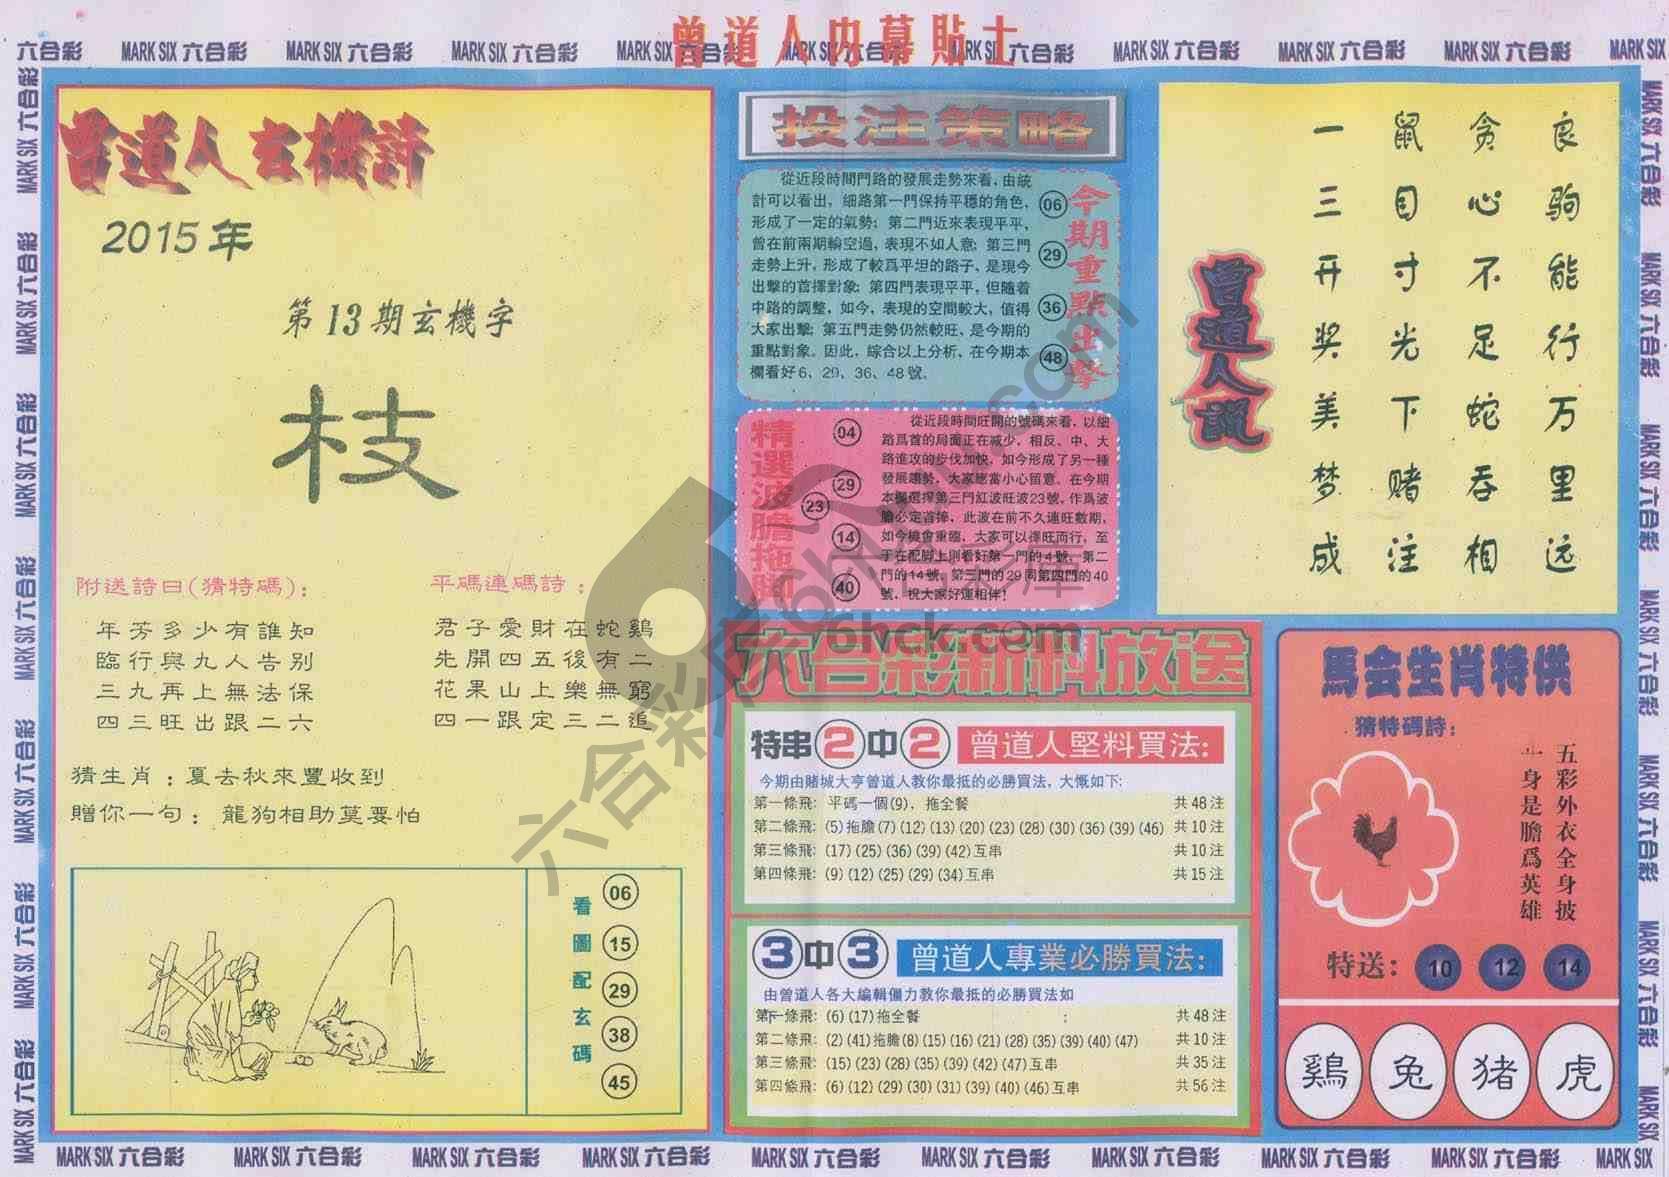 曾道人内幕貼士
六合彩 MARK SIX 六合彩 MARK SIX 六合彩 MARK SIX 六合彩 MARK SIX 六合彩 MARK SIX 六合彩 MARK SIX 六合彩 MARK SIX 六合彩 MARK SIX 六合彩 MARK SIX 六合彩 MARK SIX
曾道人玄機詩
2015年
第13期玄機字
枝
附送詩曰(猜特碼)：
年芳多少有誰知
臨行與九人告别
三九再上無法保
四三旺出跟二六
平碼連碼詩：
君子愛財在蛇鷄
先開四五後有二
花果山上樂無窮
四一跟定三二追
猜生肖：夏去秋來豐收到
贈你一句：龍狗相助莫要怕
看圖配玄碼
06
15
29
38
45
投注策略
從近段時間門路的發展走勢來看，由統
計可以看出，細路第一門保持平穩的角色，
形成了一定的氣勢；第二門近來表現平平，
曾在前兩期輪空過，表現不如人意；第三門
走勢上升，形成了較爲平坦的路子，是現今
出擊的首擇對象；第四門表現平平，但隨着
中路的調整，如今，表現的空間較大，值得
大家出擊；第五門走勢仍然較旺，是今期的
重點對象。因此，綜合以上分析，在今期本
欄看好6、29、36、48號。
今期重點出擊
06
29
36
48
精選波膽拖脚
04
29
23
14
40
從近段時間旺開的號碼來看，以細
路爲首的局面正在减少，相反、中、大
路進攻的步伐加快，如今形成了另一種
發展趨勢，大家應當小心留意。在今期
本欄選擇第三門紅波旺波23號，作爲波
膽必定首捧，此波在前不久連旺數期，
如今機會重臨，大家可以擇旺而行，至
于在配脚上則看好第一門的4號、第二
門的14號、第三門的29同第四門的40
號，祝大家好運相伴！
六合彩新料放送
特串2中2 曾道人堅料買法：
今期由賭城大亨曾道人教你最抵的必勝買法，大慨如下：
第一條飛：平碼一個(9)，拖全餐 共48注
第二條飛：(5)拖膽(7)(12)(13)(20)(23)(28)(30)(36)(39)(46) 共10注
第三條飛：(17)(25)(36)(39)(42)互串 共10注
第四條飛：(9)(12)(25)(29)(34)互串 共15注
3中3 曾道人專業必勝買法：
由曾道人各大編輯僵力教你最抵的必勝買法如下：
第一條飛：(6)(17)拖全餐 共48注
第二條飛：(2)(41)拖膽(8)(15)(16)(21)(28)(35)(39)(40)(47) 共10注
第三條飛：(15)(23)(28)(35)(39)(42)(47)互串 共35注
第四條飛：(6)(12)(29)(30)(31)(39)(40)(46)互串 共56注
良驹能行万里远
贪心不足蛇吞相
鼠目寸光下赌注
一三开奖美梦成
曾道人説
馬会生肖特供
猜特碼詩：
五彩外衣全身披
一身是膽爲英雄
特送：10 12 14
鷄 兔 猪 虎
六合彩庫 6hck.com
6hck.com
MARK SIX 六合彩 MARK SIX 六合彩 MARK SIX 六合彩 MARK SIX 六合彩 MARK SIX 六合彩 MARK SIX 六合彩 MARK SIX 六合彩 MARK SIX 六合彩 MARK SIX 六合彩 MARK SIX